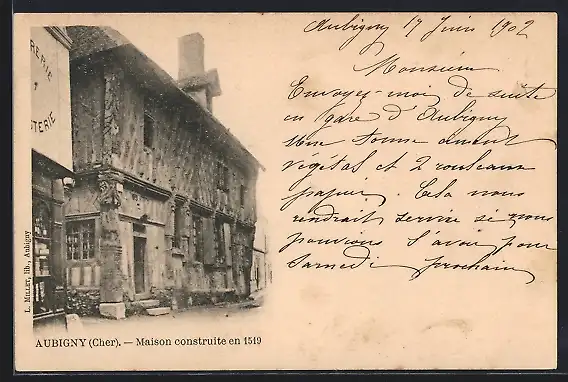 Aubigny 17 Juin 1902
Monsieur
Envoyez-moi de suite
en gare d'Aubigny
Une Tonne ciment
végétal et 2 rouleaux
papier. Cela nous
rendrait service si nous
pouvions l'avoir pour
Samedi prochain
RERIE
STERIE
L. MILLET, lib., Aubigny
AUBIGNY (Cher). — Maison construite en 1519